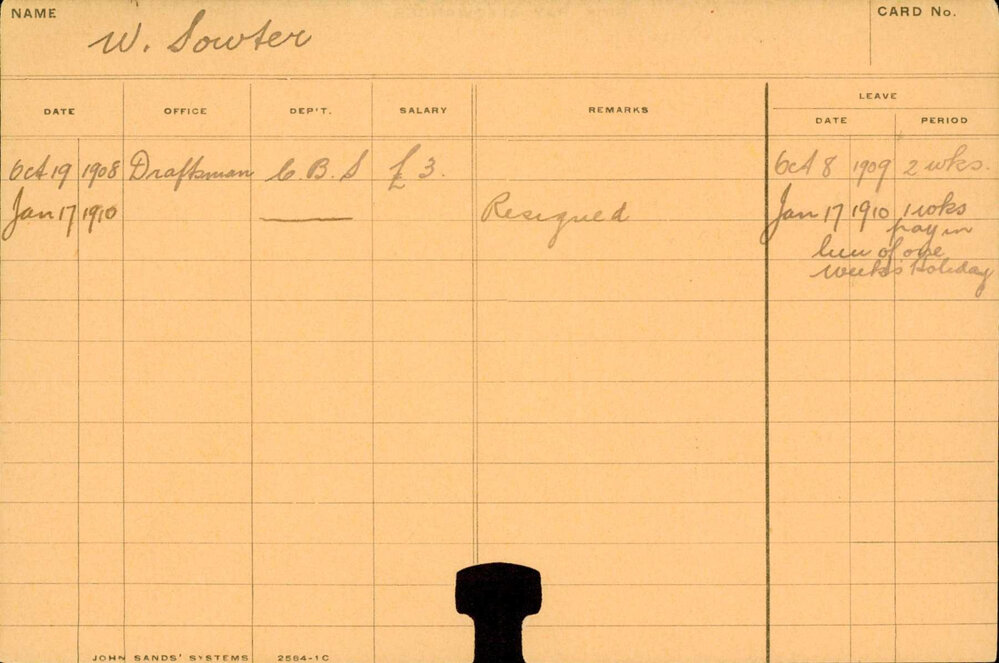 NAME
W. Sowter
CARD No.
DATE OFFICE DEP'T. SALARY REMARKS LEAVE
DATE PERIOD
Oct 19 1908 Draftsman C.B.S £3. Oct 8 1909 2 wks.
Jan 17 1910 Resigned Jan 17 1910 1 wks
pay in
lieu of one
weeks' holiday
JOHN SANDS' SYSTEMS 2584-1C